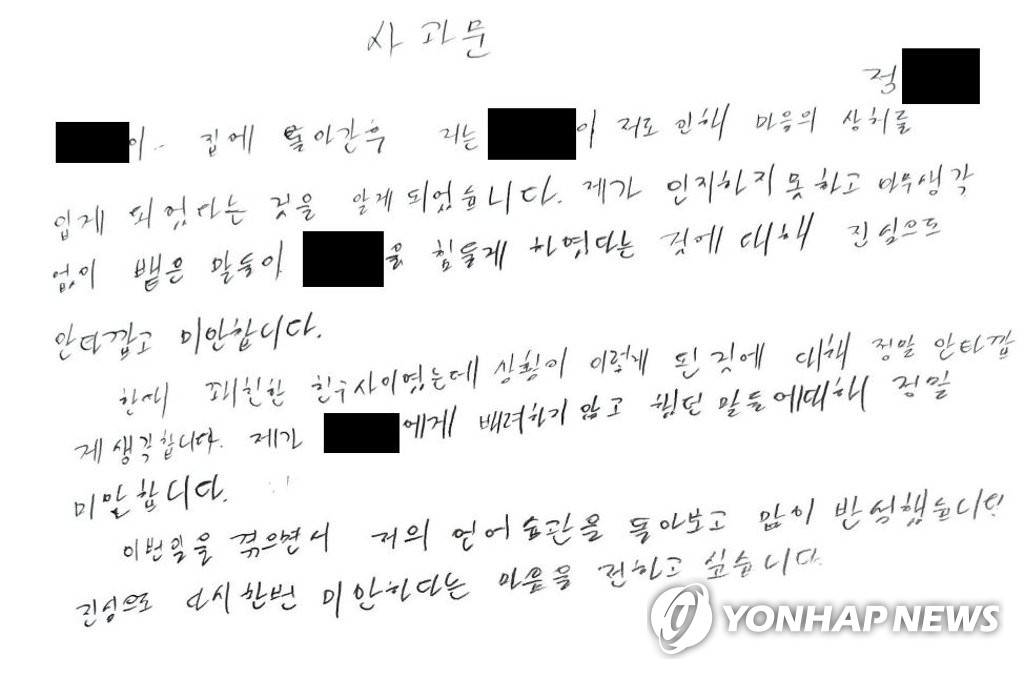 사과문
정
이.. 집에 돌아간후 저는 이 저로 인해 마음의 상처를
입게 되었다는 것을 알게 되었습니다. 제가 인지하지 못하고 아무생각
없이 뱉은 말들이 을 힘들게 하였다는 것에 대해 진심으로
안타깝고 미안합니다.
한때 꽤 친한 친구사이였는데 상황이 이렇게 된 것에 대해 정말 안타깝
게 생각합니다. 제가 에게 배려하지 않고 했던 말들에대해 정말
미안합니다.
이번일을 겪으면서 저의 언어습관을 돌아보고 많이 반성했습니다
진심으로 다시한번 미안하다는 마음을 전하고 싶습니다.
YONHAP NEWS